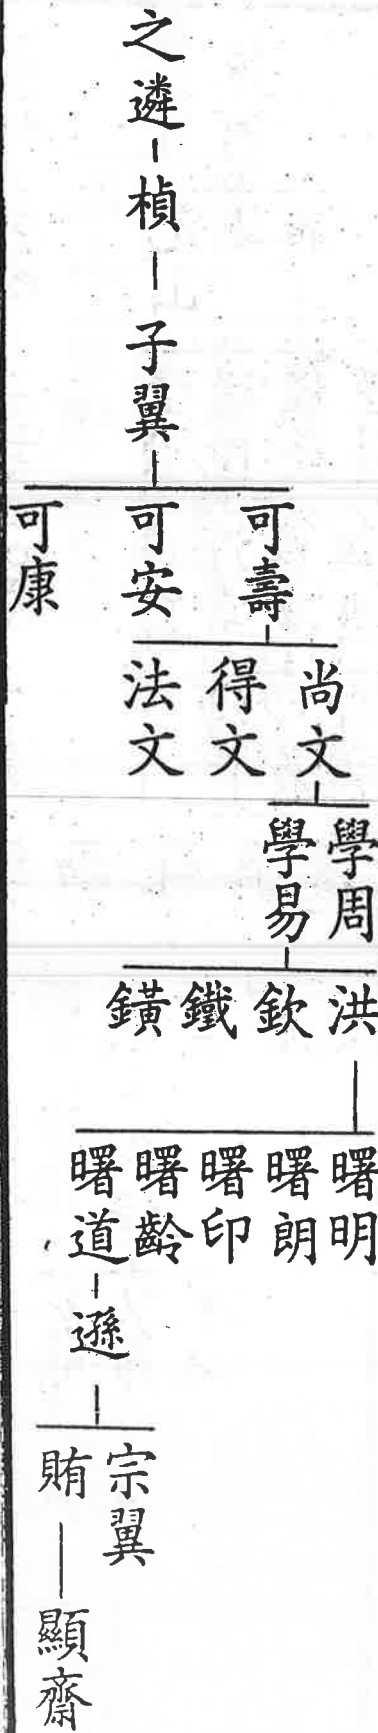 之遴
楨
子翼
可壽
可安
可康
尚文
得文
法文
學周
學易
洪
欽
鐵
鐄
曙明
曙朗
曙印
曙齡
曙道
遜
宗翼
賄
顯齋